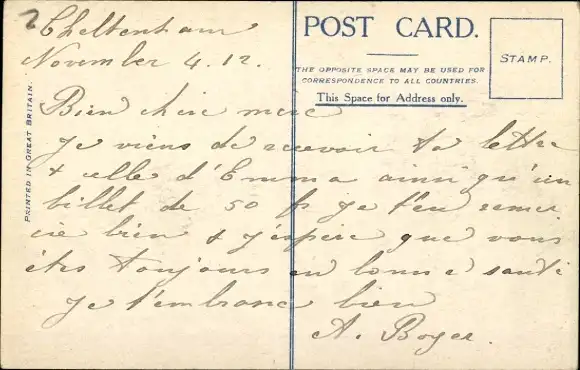 Cheltenham
November 4. 12.
POST CARD.
THE OPPOSITE SPACE MAY BE USED FOR
CORRESPONDENCE TO ALL COUNTRIES.
This Space for Address only.
STAMP.
PRINTED IN GREAT BRITAIN.
Bien chère mère
Je viens de recevoir ta lettre
& celle d'Emma ainsi qu'un
billet de 50 fr je t'en remer
cie bien & j'espère que vous
êtes toujours en bonne santé
Je t'embrasse bien
A. Boyer